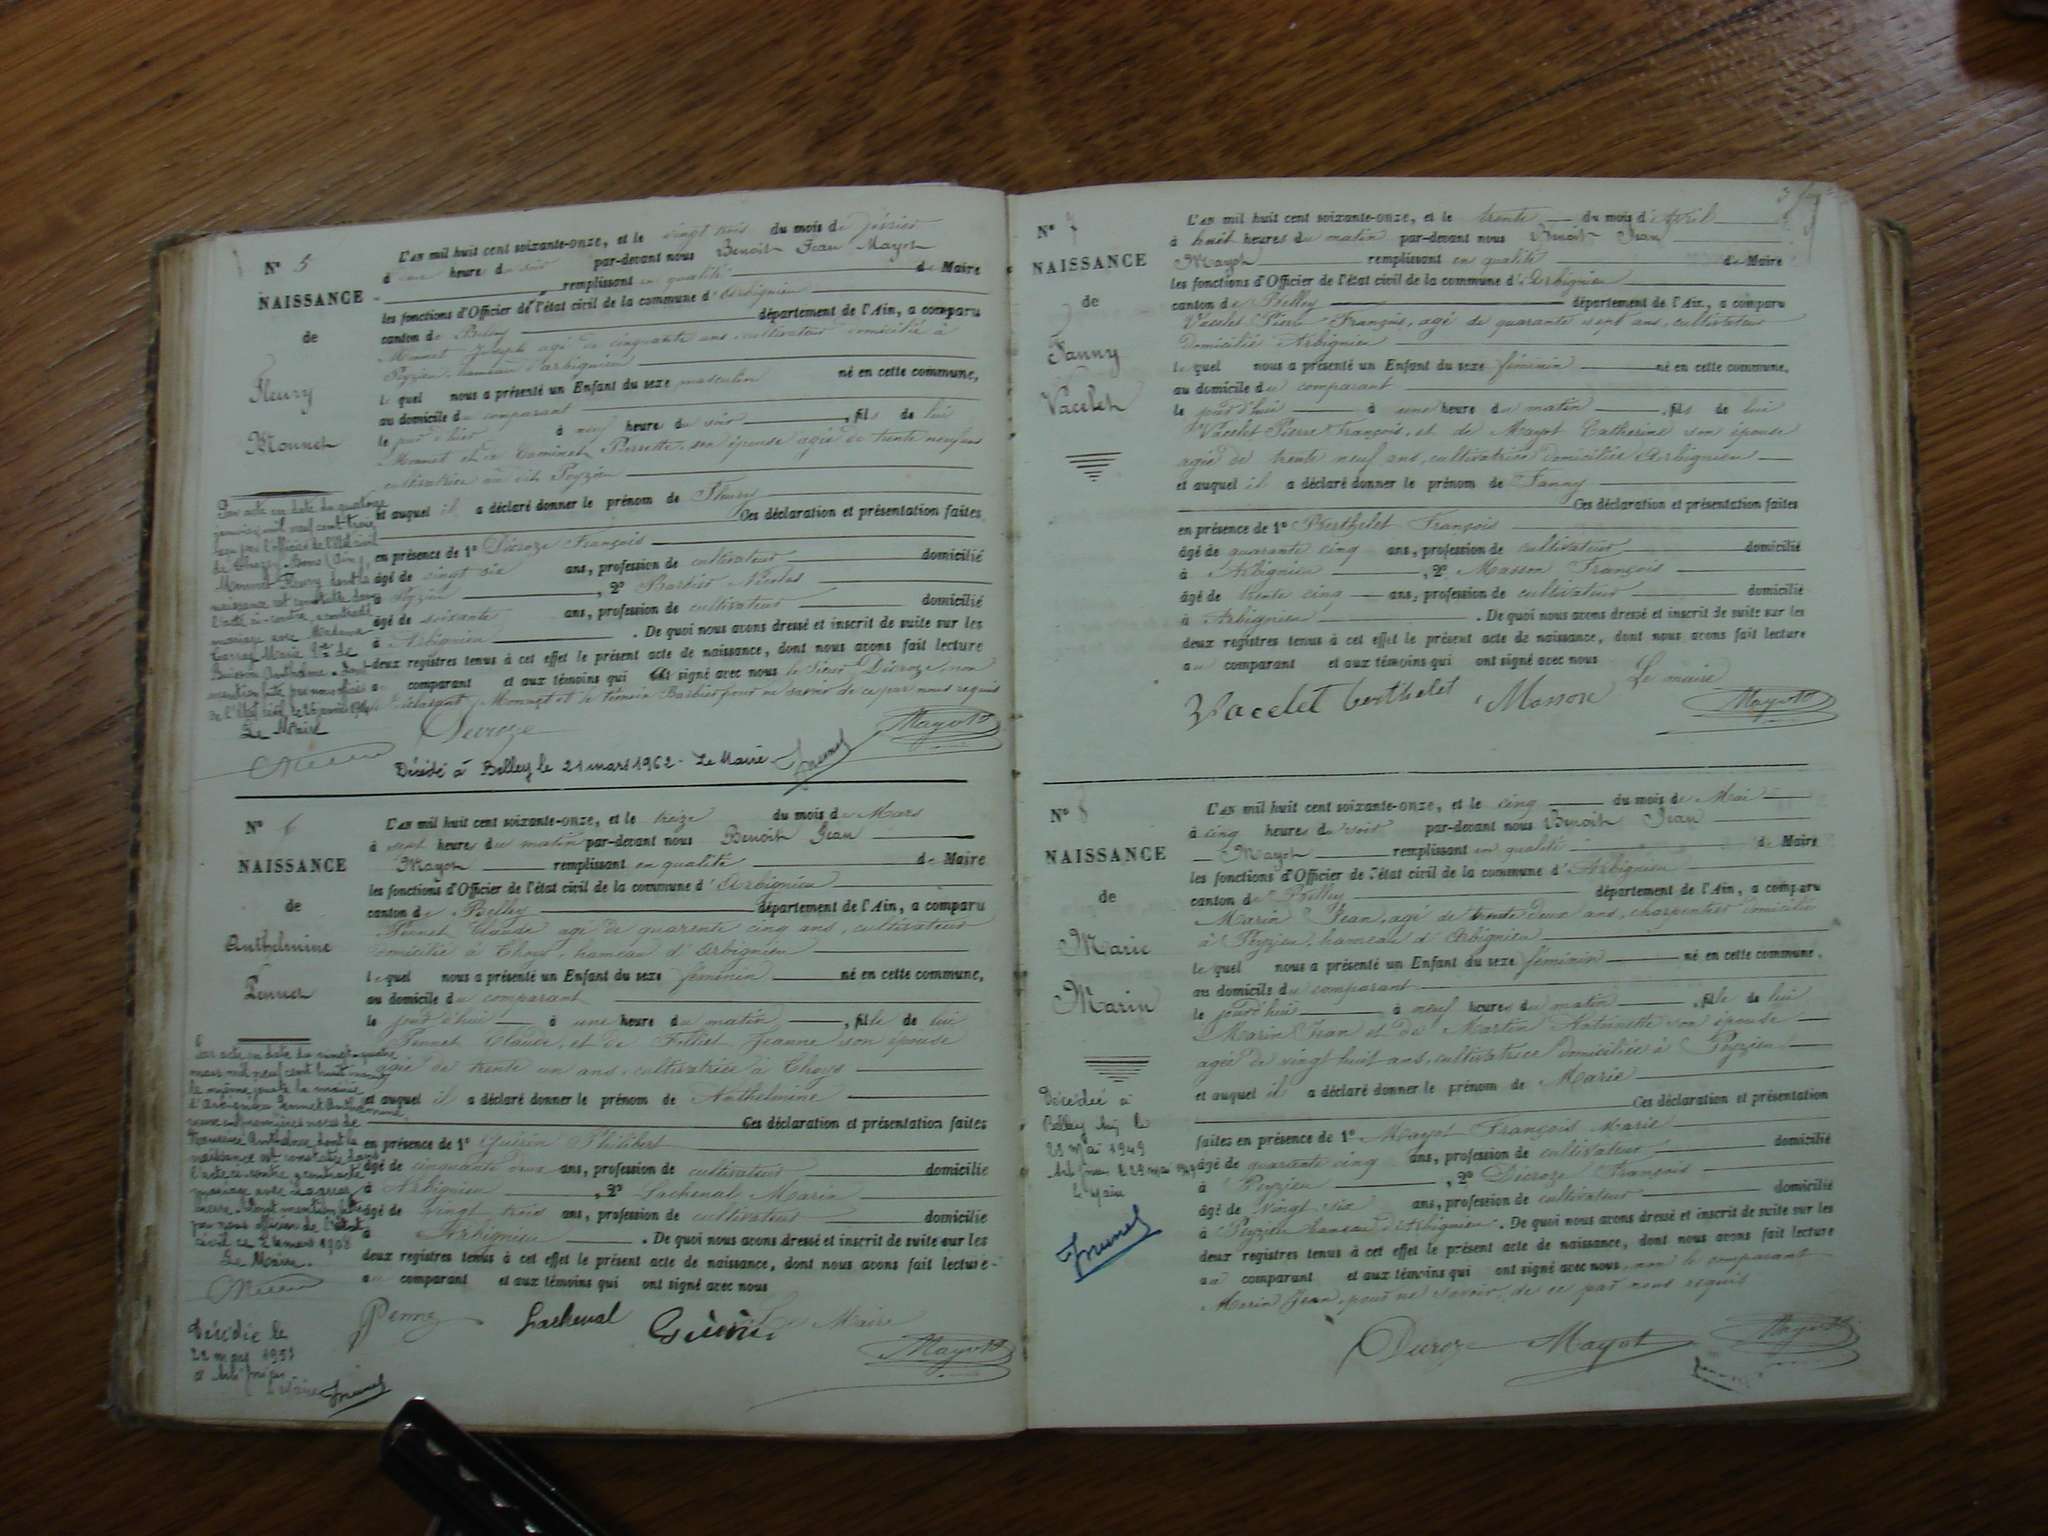 Nº 5
NAISSANCE
de
Fleury
Monnet
L'AN mil huit cent soixante-onze, et le vingt trois du mois de février
à une heure du soir par-devant nous Benoit Jean Mayot
remplissant en qualité de Maire
les fonctions d'Officier de l'état civil de la commune d'Arbignieu
canton de Belley département de l'Ain, a comparu
Monnet Joseph agé de cinquante ans, cultivateur domicilié à
Peyzieu, hameau d'Arbignieu
lequel nous a présenté un Enfant du sexe masculin né en cette commune,
au domicile du comparant
le jour d'hier à neuf heure du soir, fils de lui
Monnet et de Perrette, son épouse agée de trente neuf ans
cultivatrice au dit Peyzieu
et auquel il a déclaré donner le prénom de Fleury
Ces déclaration et présentation faites
en présence de 1º Décroze François
âgé de vingt six ans, profession de cultivateur domicilié
à Peyzieu, 2º Barbier Nicolas
âgé de soixante ans, profession de cultivateur domicilié
à Arbignieu. De quoi nous avons dressé et inscrit de suite sur les
deux registres tenus à cet effet le présent acte de naissance, dont nous avons fait lecture
au comparant et aux témoins qui ont signé avec nous le sieur Décroze, non
Monnet et le témoin Barbier pour ne savoir de ce par nous requis
Decroze
Mayot
Par acte en date du quatorze
janvier mil neuf cent trois
reçu par l'officier de l'état civil
de (Ain),
Monnet Fleury dont la
naissance est constatée dans
l'acte ci-contre, a contracté
mariage avec Madame
Marie Vve de
Anthelme. Dont
mention faite par nous officier
de l'état civil le 26 janvier
Le Maire
Décédé à Belley le 21 mars 1962 - Le Maire
Nº 6
NAISSANCE
de
Anthelmine
Pennet
L'AN mil huit cent soixante-onze, et le treize du mois de Mars
à sept heures du matin par-devant nous Benoit Jean
Mayot remplissant en qualité de Maire
les fonctions d'Officier de l'état civil de la commune d'Arbignieu
canton de Belley département de l'Ain, a comparu
Pennet Claude agé de quarente cinq ans, cultivateur
domicilié à Thoys, hameau d'Arbignieu
lequel nous a présenté un Enfant du sexe féminin né en cette commune,
au domicile du comparant
le jour d'hui à une heure du matin, fille de lui
Pennet Claude, et de Jeanne son épouse
agée de trente un ans, cultivatrice à Thoys
et auquel il a déclaré donner le prénom de Anthelmine
Ces déclaration et présentation faites
en présence de 1º Guérin Philibert
âgé de cinquante deux ans, profession de cultivateur domicilié
à Arbignieu, 2º Lachenal Marin
âgé de vingt trois ans, profession de cultivateur domicilié
à Arbignieu. De quoi nous avons dressé et inscrit de suite sur les
deux registres tenus à cet effet le présent acte de naissance, dont nous avons fait lecture
au comparant et aux témoins qui ont signé avec nous
Lachenal Guérin Le Maire
Mayot
Par acte en date du vingt-quatre
mars mil neuf cent huit
le même jour à la mairie
d'Arbignieu Pennet Anthelmine
veuve en premières noces de
Anthelme dont la
naissance est constatée dans
l'acte ci-contre a contracté
mariage avec
Dont mention faite
par nous officier de l'état
civil ce 24 mars 1908
Le Maire.
Décédée le
22 mars
à Arbignieu
Le Maire
Nº 7
NAISSANCE
de
Fanny
Vacelet
L'AN mil huit cent soixante-onze, et le trente du mois d'Avril
à huit heures du matin par-devant nous Benoit Jean
Mayot remplissant en qualité de Maire
les fonctions d'Officier de l'état civil de la commune d'Arbignieu
canton de Belley département de l'Ain, a comparu
Vacelet Pierre François, agé de quarante sept ans, cultivateur
domicilié Arbignieu
lequel nous a présenté un Enfant du sexe féminin né en cette commune,
au domicile du comparant
le jourd'hui à une heure du matin, fille de lui
Vacelet Pierre François, et de Mayot Catherine son épouse
agée de trente neuf ans, cultivatrice domiciliée Arbignieu
et auquel il a déclaré donner le prénom de Fanny
Ces déclaration et présentation faites
en présence de 1º Berthelet François
âgé de quarante cinq ans, profession de cultivateur domicilié
à Arbignieu, 2º Masson François
âgé de trente cinq ans, profession de cultivateur domicilié
à Arbignieu. De quoi nous avons dressé et inscrit de suite sur les
deux registres tenus à cet effet le présent acte de naissance, dont nous avons fait lecture
au comparant et aux témoins qui ont signé avec nous
Le maire
Vacelet berthelet Masson
Mayot
Nº 8
NAISSANCE
de
Marie
Marin
L'AN mil huit cent soixante-onze, et le cinq du mois de Mai
à cinq heures du soir par-devant nous Benoit Jean
Mayot remplissant en qualité de Maire
les fonctions d'Officier de l'état civil de la commune d'Arbignieu
canton de Belley département de l'Ain, a comparu
Marin Jean, agé de trente deux ans, charpentier domicilié
à Peyzieu, hameau d'Arbignieu
lequel nous a présenté un Enfant du sexe féminin né en cette commune,
au domicile du comparant
le jourd'hui à neuf heures du matin, fille de lui
Marin Jean et de Martin Antoinette son épouse
agée de vingt huit ans, cultivatrice domiciliée à Peyzieu
et auquel il a déclaré donner le prénom de Marie
Ces déclaration et présentation
faites en présence de 1º Mayot François Marie
âgé de quarante cinq ans, profession de cultivateur domicilié
à Peyzieu, 2º Décroze François
âgé de vingt six ans, profession de cultivateur domicilié
à Peyzieu hameau d'Arbignieu. De quoi nous avons dressé et inscrit de suite sur les
deux registres tenus à cet effet le présent acte de naissance, dont nous avons fait lecture
au comparant et aux témoins qui ont signé avec nous, non le comparant
Marin Jean, pour ne savoir, de ce par nous requis
Decroze Mayot Mayot
Décédée à
Belley le
28 Mai 1949
le 29 mai
Le Maire